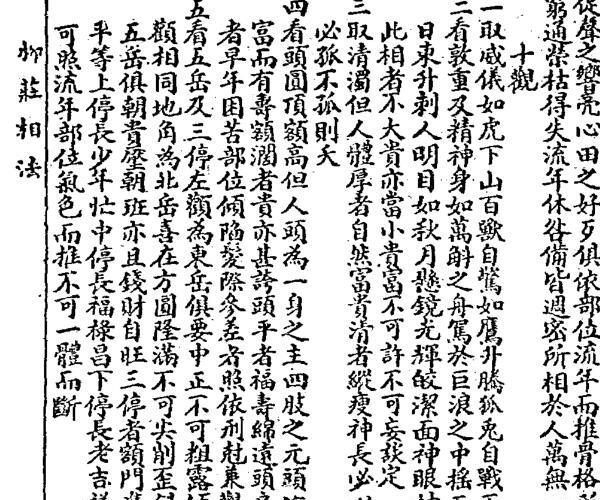 從聲之響亮心田之好歹俱依部位流年而推骨格
窮通榮枯得失流年休咎備皆週密所相於人萬無
十觀
一取威儀如虎下山百獸自驚如鷹升騰狐兔自戰
二看敦重及精神身如萬斛之舟駕於巨浪之中搖
日東升刺人明目如秋月懸鏡光輝皎潔面神眼
此相者不大貴亦當小貴富不可許不可妄談定
三取清濁但人體厚者自然富貴清者縱瘦神長必
必孤不孤則夭
四看頭圓頂額高但人頭為一身之主四肢之元頭
富而有壽額濶者貴亦甚誇頭平者福壽綿遠頭
者早年困苦部位傾陷髮際參差者照依刑尅兼觀
五看五岳及三停左顴為東岳俱要中正不可粗露
顴相同地角為北岳喜在方圓隆滿不可尖削歪
五岳俱朝貴壓朝班亦且錢財自旺三停者額門
平等上停長少年忙中停長福祿昌下停長老吉
可照流年部位氣色而推不可一體而斷
柳莊相法